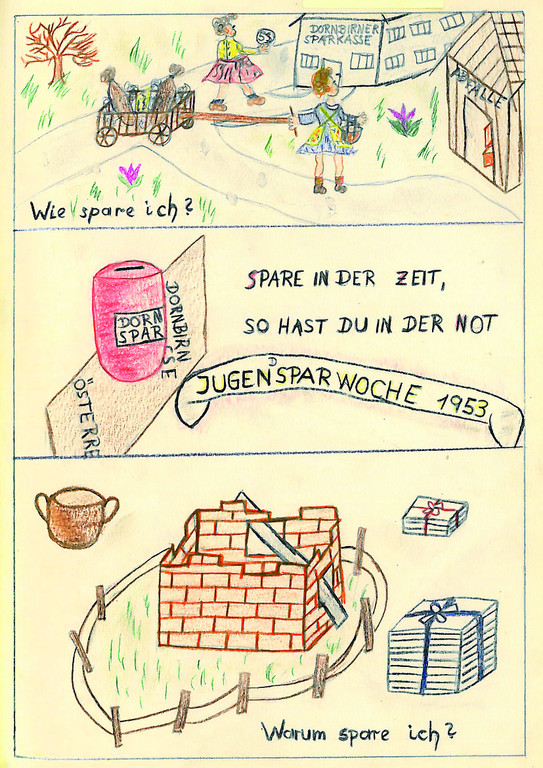 5S
DORNBIRNER
SPARKASSE
ABFÄLLE
Wie spare ich?
DORN
SPAR
DORNBIRN
SSE
ÖSTERRE
SPARE IN DER ZEIT,
SO HAST DU IN DER NOT
JUGENDSPARWOCHE 1953
Warum spare ich?